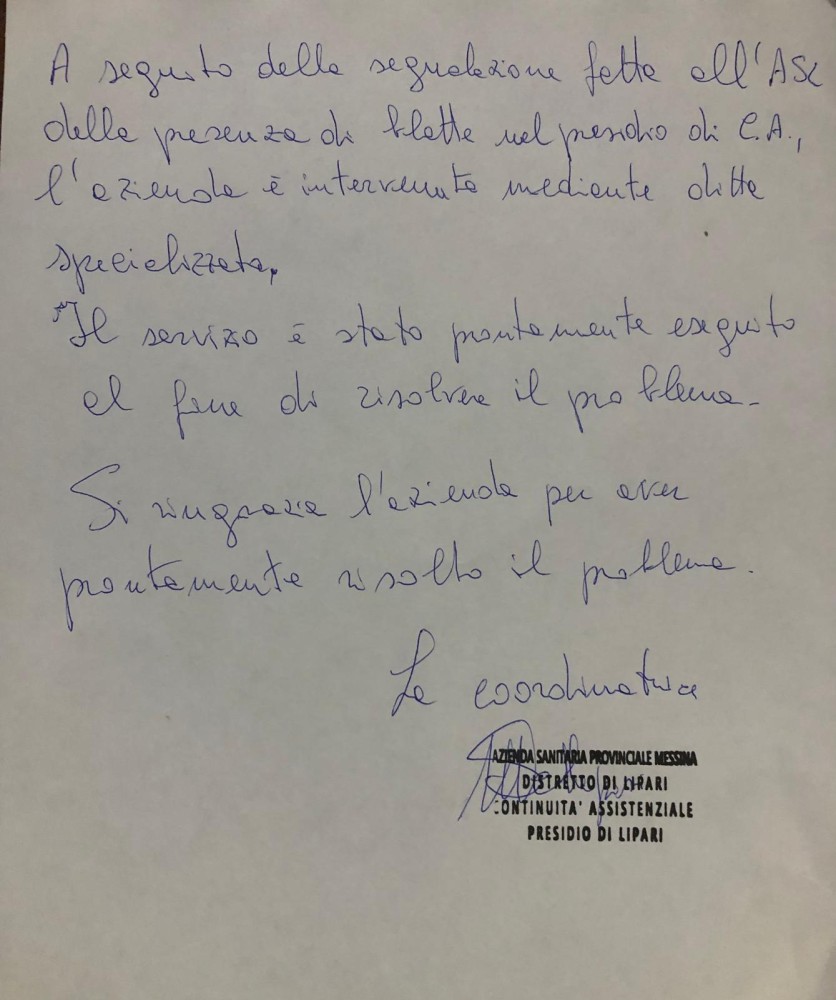 A seguito della segnalazione fatta all'ASL
della presenza di blatte nel presidio di C.A.,
l'azienda è intervenuta mediante ditta
specializzata.
Il servizo è stato prontamente eseguito
al fine di risolvere il problema.
Si ringrazia l'azienda per aver
prontamente risolto il problema.
La coordinatrice
AZIENDA SANITARIA PROVINCIALE MESSINA
DISTRETTO DI LIPARI
CONTINUITA' ASSISTENZIALE
PRESIDIO DI LIPARI